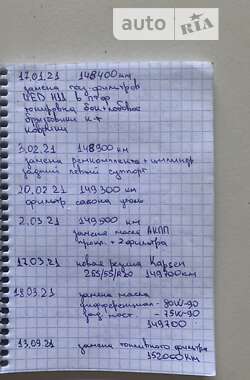 auto RIA
17.01.21 148400 км
замена газ. фильтров
LED H11 в птф
тонировка бок + лобовое
брызговики к-т
коврики
3.02.21 148900 км
замена ремкомплекта + цилиндр
задний левый суппорт
20.02.21 149300 км
фильтр салона уголь
2.03.21 149500 км
замена масла АКПП
+ 2 фильтра
17.03.21 новая резина Kapsen
265/55/R20 149700 км
18.03.21 замена масла
дифференциал - 80W-90
зад. мост. - 75W-90
149700
13.09.21 замена топливного фильтра
152000 км